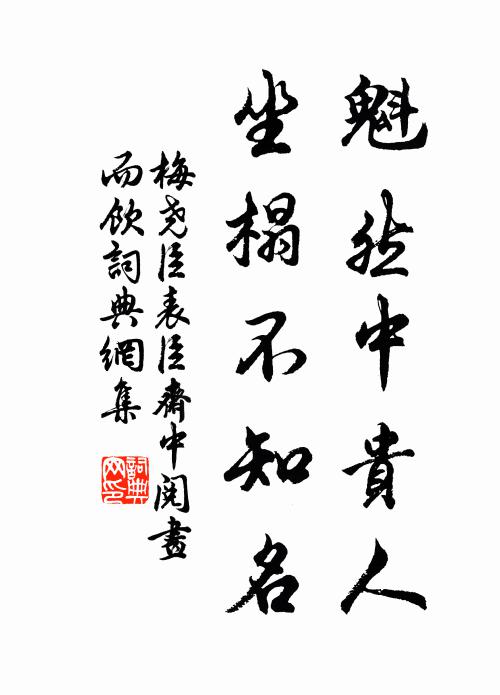 魁然中貴人
坐榻不知名
梅尧臣表臣齋中閱畫
而飲詞典網集
詞典
网印